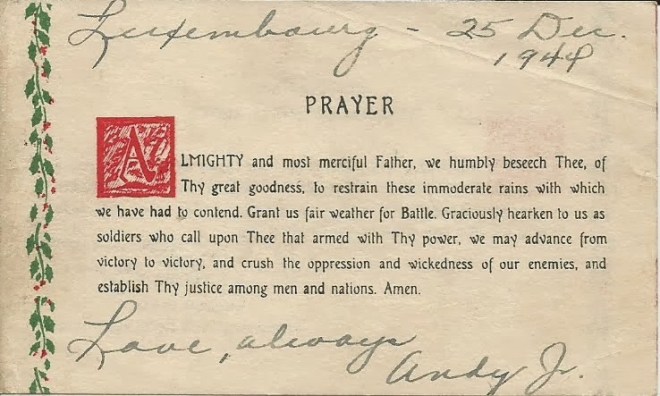 Luxembourg - 25 Dec.
1944
PRAYER
ALMIGHTY and most merciful Father, we humbly beseech Thee, of
Thy great goodness, to restrain these immoderate rains with which
we have had to contend. Grant us fair weather for Battle. Graciously hearken to us as
soldiers who call upon Thee that armed with Thy power, we may advance from
victory to victory, and crush the oppression and wickedness of our enemies, and
establish Thy justice among men and nations. Amen.
Love, always
Andy Jr.